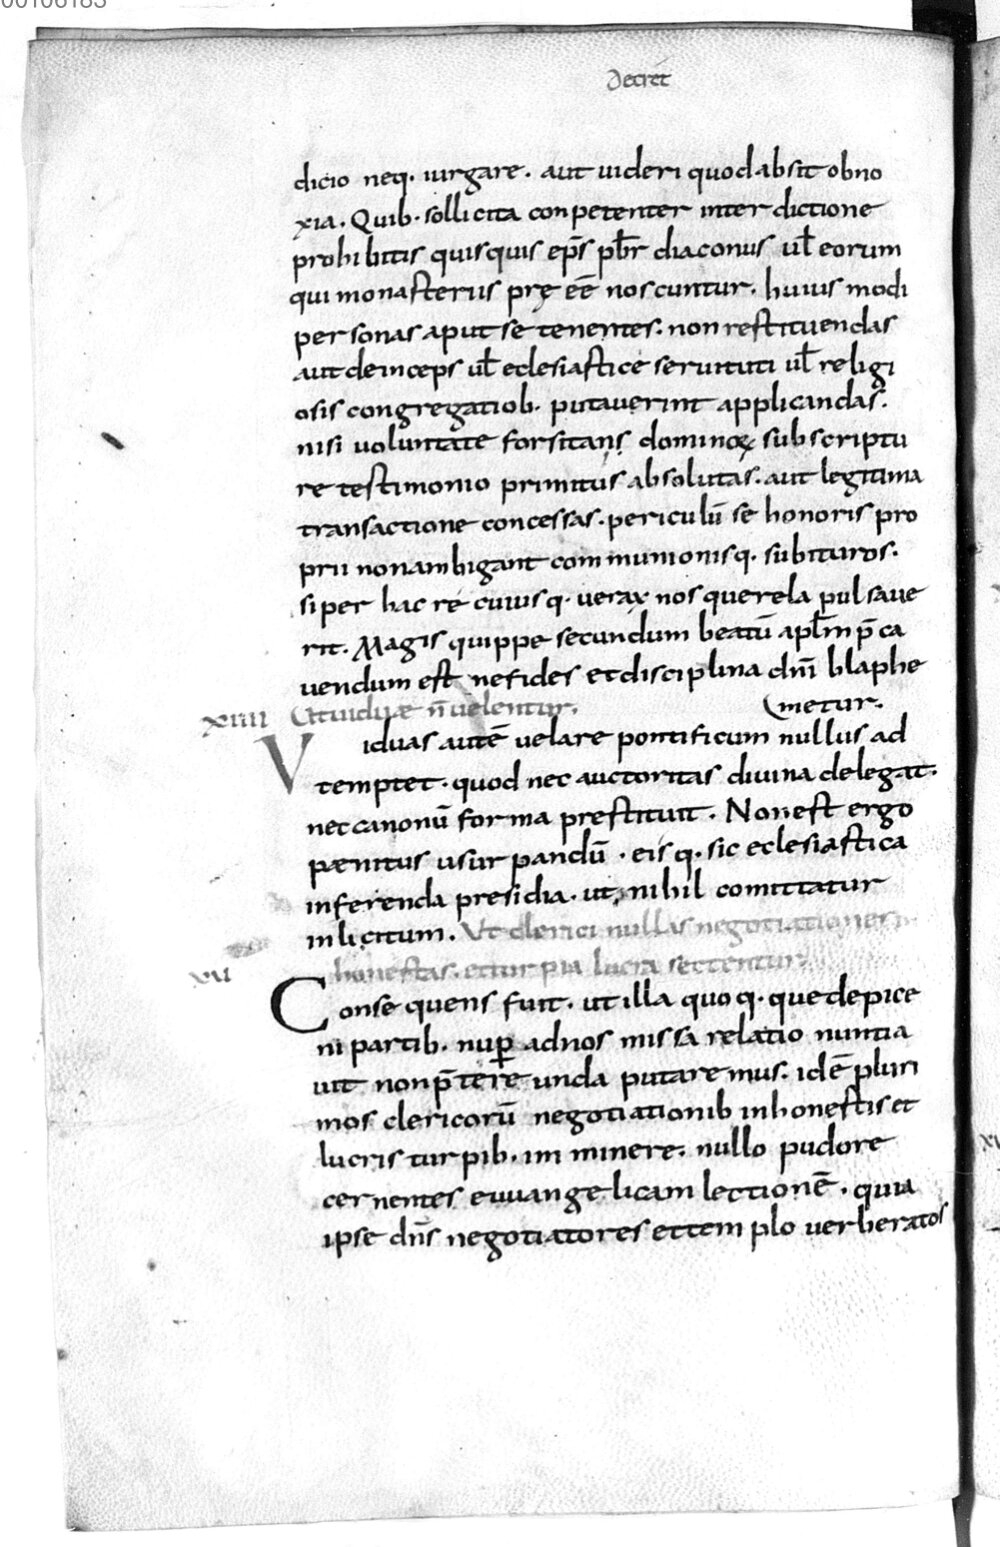 00106183
Decret̄
dicio neq. uirgare. aut uideri quod absit obno
xia. Quib. sollicita conpetenter interdictione
prohibitis quisquis ep̄s pb̄r diaconus ul̄ eorum
qui monasteriis prę eē noscuntur. huius modi
personas aput se tenentes. non restituendas
aut deinceps ul̄ eclesiastice seruituti ul̄ religi
osis congregatiob. putauerint applicandas.
nisi uoluntate forsitans dominoꝝ sub scriptu
re testimonio primitus absolutas. aut legitima
transactione concessas. periculū se honoris pro
prii non ambigant communionisq. subituros.
si per hac re cuiusq. uerax nos querela pulsaue
rit. Magis quippe secundum beatū apl̄m p̄ca
uendum est ne fides et disciplina dn̄i blaphe
metur.
xiiii Ut uiduæ n̄ uelentur.
Viduas autē uelare pontificum nullus ad
temptet. quod nec auctoritas diuina delegat.
nec canonū forma prestituit. Non est ergo
pænitus usurpandū. eisq. sic eclesiastica
inferenda presidia. ut nihil comittatur
inlicitum. Ut clerici nullas negotiationes in
xvii honestas. et turpia lucra sectentur.
Consequens fuit. ut illa quoq. que de pice
ni partib. nuꝑ ad nos missa relatio nuntia
uit non p̄tereunda putaremus. idē pluri
mos clericorū negotiationib inhonestis et
lucris turpib. imminere. nullo pudore
cernentes euuangelicam lectionē. quia
ipse dn̄s negotiatores et templo uerberatos